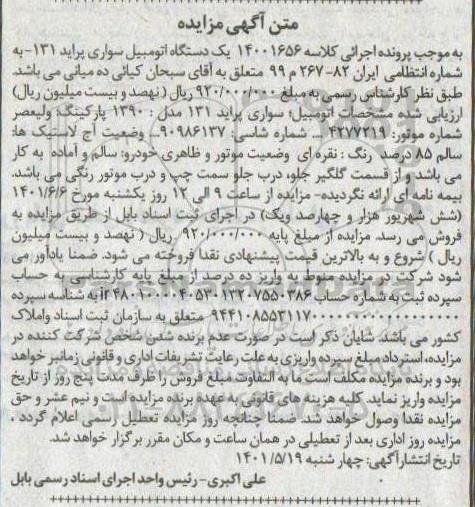 متن آگهی مزایده
به موجب پرونده اجرائی کلاسه ۱۴۰۰۱۶۵۶ یک دستگاه اتومبیل سواری پراید ۱۳۱- به
شماره انتظامی ایران ۸۲-۲۶۷ م ۹۹ متعلق به آقای سبحان کیائی ده میانی می باشد.
طبق نظر کارشناس رسمی به مبلغ ۹۲۰/۰۰۰/۰۰۰ ریال ( نهصد و بیست میلیون ریال)
ارزیابی شده مشخصات اتومبیل؛ سواری پراید ۱۳۱ مدل : ۱۳۹۰ پارکینگ: ولیعصر
شماره موتور: ۴۲۷۷۲۱۹ – شماره شاسی: ۹۰۹۸۶۱۳۷- وضعیت آج لاستیک ها:
سالم ۸۵ درصد رنگ : نقره ای وضعیت موتور و ظاهری خودرو: سالم و آماده به کار
می باشد و از قسمت گلگیر جلو، درب جلو سمت چپ و درب موتور رنگی می باشد.
بیمه نامه ای ارائه نگردیده- مزایده از ساعت ۹ الی ۱۲ روز یکشنبه مورخ ۱۴۰۱/۶/۶
(شش شهریور هزار و چهارصد ویک) در اجرای ثبت اسناد بابل از طریق مزایده به
فروش می رسد. مزایده از مبلغ پایه ۹۲۰/۰۰۰/۰۰۰ ریال ( نهصد و بیست میلیون
ریال ) شروع و به بالاترین قیمت پیشنهادی نقدا فروخته می شود. ضمنا یادآور می
شود شرکت در مزایده منوط به واریز ده درصد از مبلغ پایه کارشناسی به حساب
سپرده ثبت به شماره حساب به شناسه سپرده
متعلق به سازمان ثبت اسناد واملاک
کشور می باشد. شایان ذکر است در صورت عدم برنده شدن شخص شرکت کننده در
مزایده، استرداد مبلغ سپرده واریزی به علت رعایت تشریفات اداری و قانونی زمانبر خواهد
بود و برنده مزایده مکلف است ما به التفاوت مبلغ فروش را ظرف مدت پنج روز از تاریخ
مزایده واریز نماید. کلیه هزینه های قانونی به عهده برنده مزایده است و نیم عشر و حق
مزایده نقدا وصول خواهد شد. ضمنا چنانچه روز مزایده تعطیل رسمی اعلام گردد .
مزایده روز اداری بعد از تعطیلی در همان ساعت و مکان مقرر برگزار خواهد شد.
تاریخ انتشار آگهی: چهار شنبه ۱۴۰۱/۵/۱۹
علی اکبری- رئیس واحد اجرای اسناد رسمی بابل